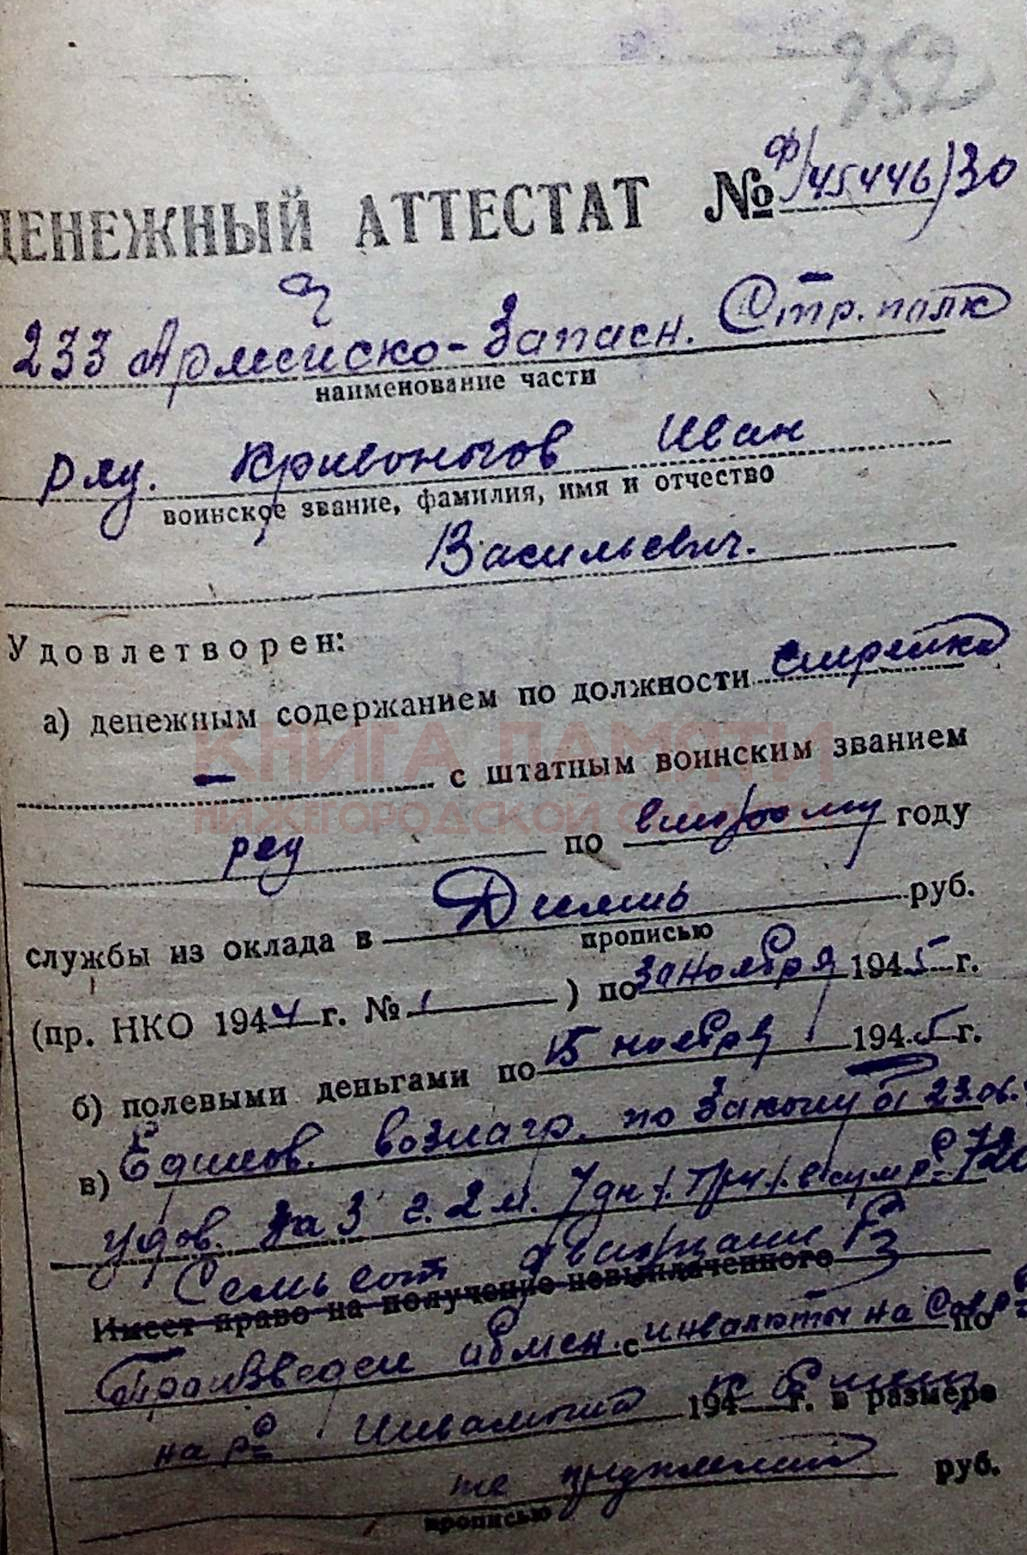 352
ДЕНЕЖНЫЙ АТТЕСТАТ № Ф/45446/30
233 Армейско-Запасн. Стр. полк
наименование части
ряд. Кривоногов Иван
воинское звание, фамилия, имя и отчество
Васильевич.
Удовлетворен:
а) денежным содержанием по должности стрелка
КНИГА ПАМЯТИ
— с штатным воинским званием
НИЖЕГОРОДСКОЙ ОБЛАСТИ
ряд по второму году
службы из оклада в Десять руб.
прописью
(пр. НКО 1944 г. № 1 ) по 30 ноября 1945 г.
б) полевыми деньгами по 15 ноября 1945 г.
в) Единов. вознагр. по Закону от 23.06.
удов. за 3 г. 2 м. 7 дн. в сум р. 720
Семьсот двадцать
Имеет право на получение невыплаченного
Произведен обмен с инвалюты на Сов. р. по
на р. 194 г. в размере
не руб.
прописью